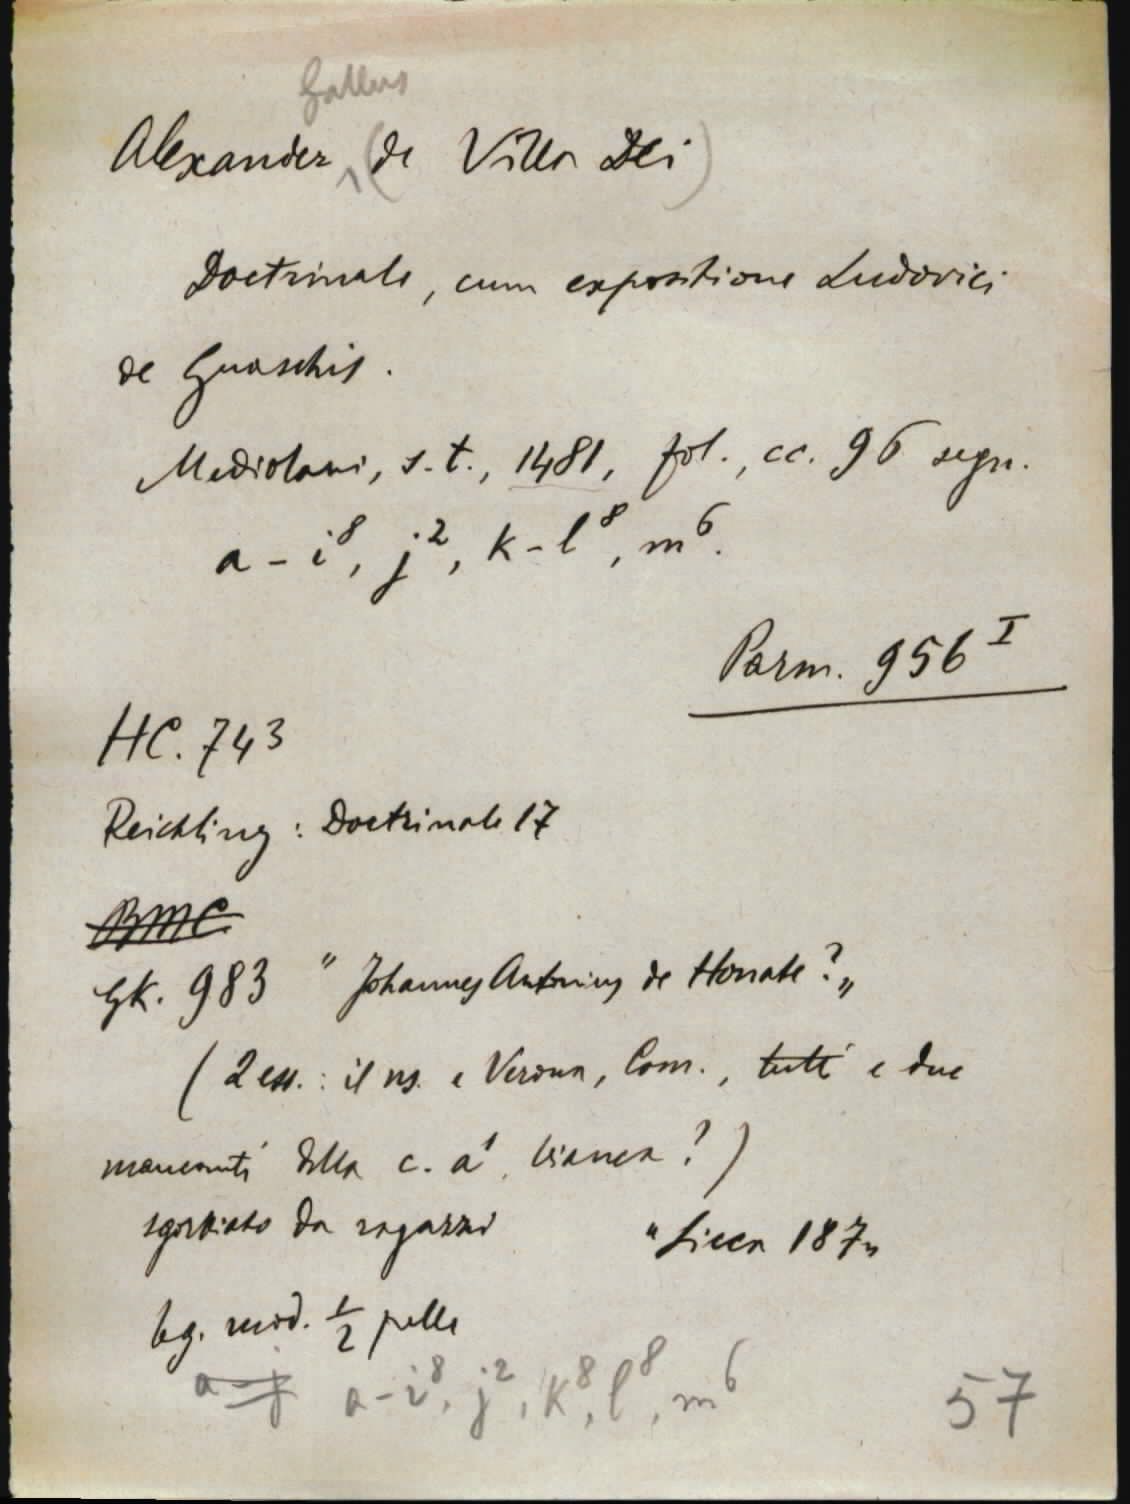 Gallus
Alexander (de Villa Dei)
Doctrinale, cum expositione Ludovici
de Guaschis.
Mediolani, s.t., 1481, fol., cc. 96 segn.
a-i⁸, j², k-l⁸, m⁶.
Parm. 956 I
HC. 743
Reichling: Doctrinale 17
BMC
GK. 983 "Johannes Antonius de Honate?"
(2 es.: il ns. e Verona, Com., tutti e due
mancanti della c. a¹, bianca?)
sgorbiato da ragazzi "Sicca 187"
leg. mod. ½ pelle
a-j a-i⁸, j², k⁸, l⁸, m⁶ 57